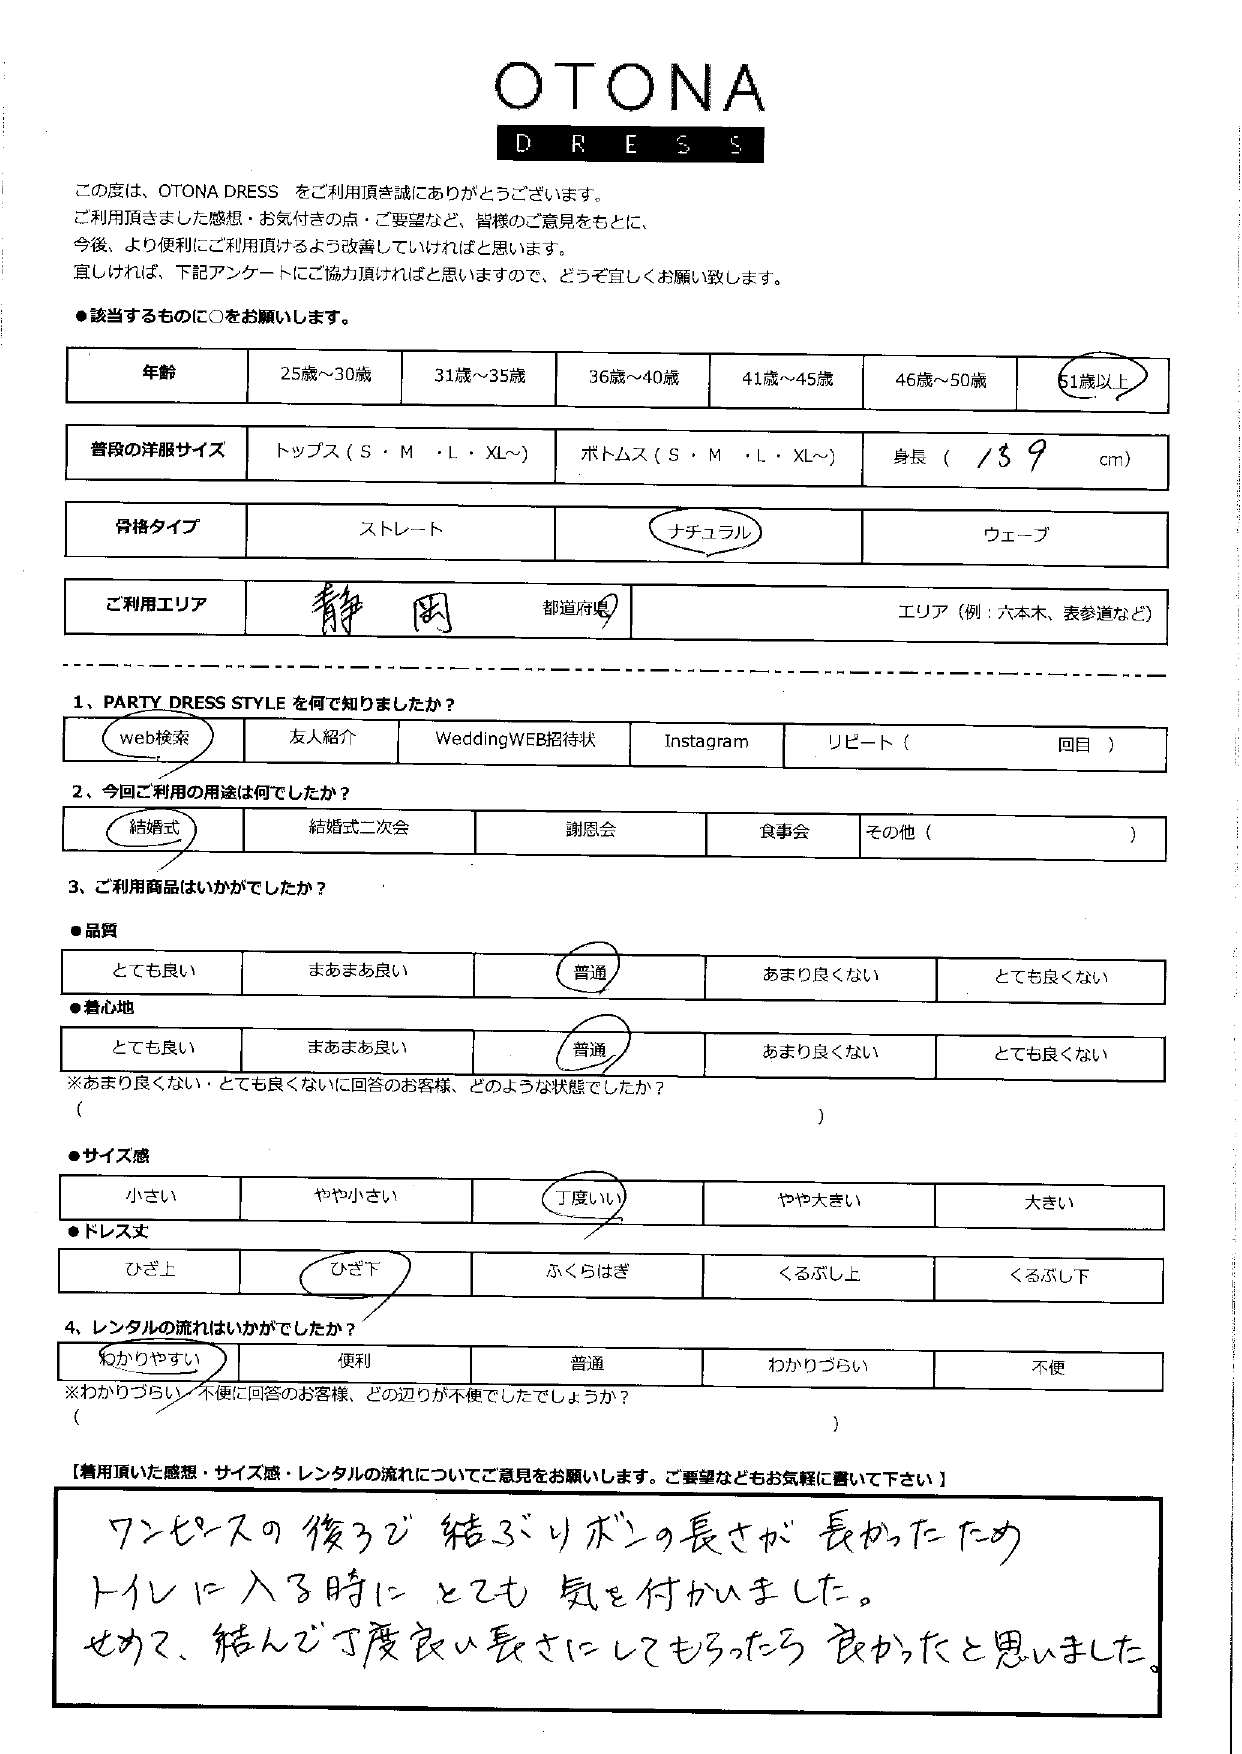 OTONA
DRESS
この度は、OTONA DRESS をご利用頂き誠にありがとうございます。
ご利用頂きました感想・お気付きの点・ご要望など、皆様のご意見をもとに、
今後、より便利にご利用頂けるよう改善していければと思います。
宜しければ、下記アンケートにご協力頂ければと思いますので、どうぞ宜しくお願い致します。
●該当するものに○をお願いします。
年齢 25歳～30歳 31歳～35歳 36歳～40歳 41歳～45歳 46歳～50歳 51歳以上
普段の洋服サイズ トップス ( S ・ M ・L ・ XL～) ボトムス ( S ・ M ・L ・ XL～) 身長 ( 159 cm)
骨格タイプ ストレート ナチュラル ウェーブ
ご利用エリア 静岡 都道府県 エリア（例：六本木、表参道など）
1、PARTY DRESS STYLE を何で知りましたか？
web検索 友人紹介 WeddingWEB招待状 Instagram リピート（ 回目 ）
2、今回ご利用の用途は何でしたか？
結婚式 結婚式二次会 謝恩会 食事会 その他（ ）
3、ご利用商品はいかがでしたか？
●品質
とても良い まあまあ良い 普通 あまり良くない とても良くない
●着心地
とても良い まあまあ良い 普通 あまり良くない とても良くない
※あまり良くない・とても良くないに回答のお客様、どのような状態でしたか？
( )
●サイズ感
小さい やや小さい 丁度いい やや大きい 大きい
●ドレス丈
ひざ上 ひざ下 ふくらはぎ くるぶし上 くるぶし下
4、レンタルの流れはいかがでしたか？
わかりやすい 便利 普通 わかりづらい 不便
※わかりづらい・不便に回答のお客様、どの辺りが不便でしたでしょうか？
( )
【着用頂いた感想・サイズ感・レンタルの流れについてご意見をお願いします。ご要望などもお気軽に書いて下さい 】
ワンピースの後ろで結ぶリボンの長さが長かったため
トイレに入る時にとても気を付かいました。
せめて、結んで丁度良い長さにしてもらったら良かったと思いました。